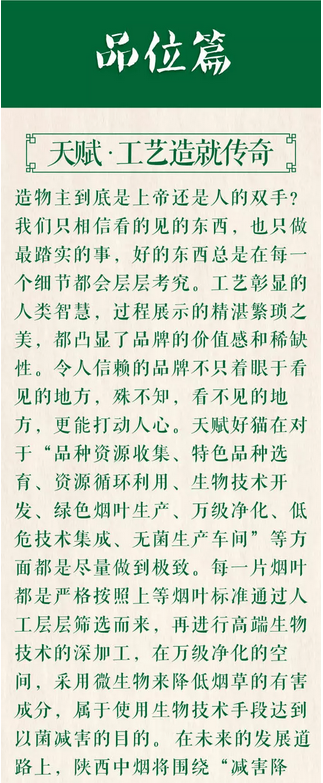 品位篇
天赋·工艺造就传奇
造物主到底是上帝还是人的双手？
我们只相信看的见的东西，也只做
最踏实的事，好的东西总是在每一
个细节都会层层考究。工艺彰显的
人类智慧，过程展示的精湛繁琐之
美，都凸显了品牌的价值感和稀缺
性。令人信赖的品牌不只着眼于看
见的地方，殊不知，看不见的地
方，更能打动人心。天赋好猫在对
于“品种资源收集、特色品种选
育、资源循环利用、生物技术开
发、绿色烟叶生产、万级净化、低
危技术集成、无菌生产车间”等方
面都是尽量做到极致。每一片烟叶
都是严格按照上等烟叶标准通过人
工层层筛选而来，再进行高端生物
技术的深加工，在万级净化的空
间，采用微生物来降低烟草的有害
成分，属于使用生物技术手段达到
以菌减害的目的。在未来的发展道
路上，陕西中烟将围绕“减害降